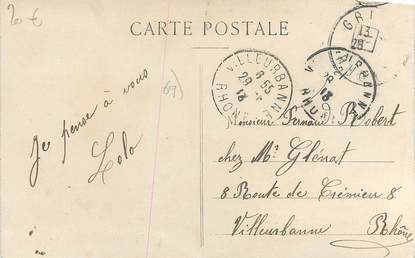 20 €
CARTE POSTALE
GRI
13
28
VILLEURBANNE
8 55
28
13
RHONE
69)
Je pense à vous
Lolo
Monsieur Fernand Robert
chez Mr Glénat
8 Route de Crémieu 8
Villeurbanne Rhône